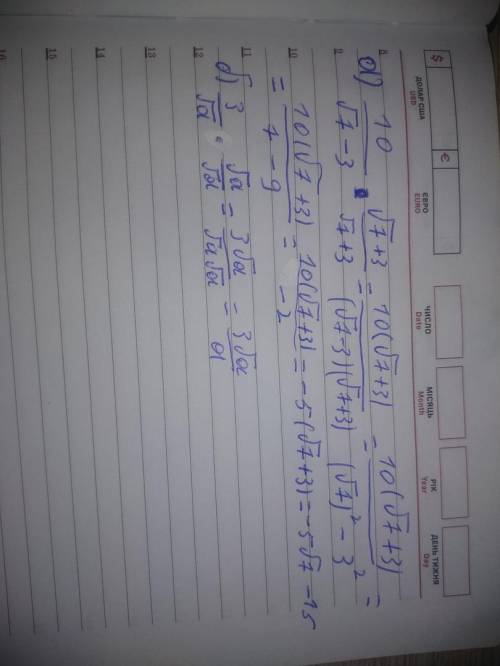 $ ДОЛАР США USD € ЄВРО EURO ЧИСЛО Date МІСЯЦЬ Month РІК Year ДЕНЬ ТИЖНЯ Day
8
a) 10/(√7-3) · (√7+3)/(√7+3) = 10(√7+3)/((√7-3)(√7+3)) = 10(√7+3)/((√7)²-3²) =
9
10
= 10(√7+3)/(7-9) = 10(√7+3)/(-2) = -5(√7+3) = -5√7-15
11
б) 3/√a · √a/√a = 3√a/(√a√a) = 3√a/a
12
13
14
15
16